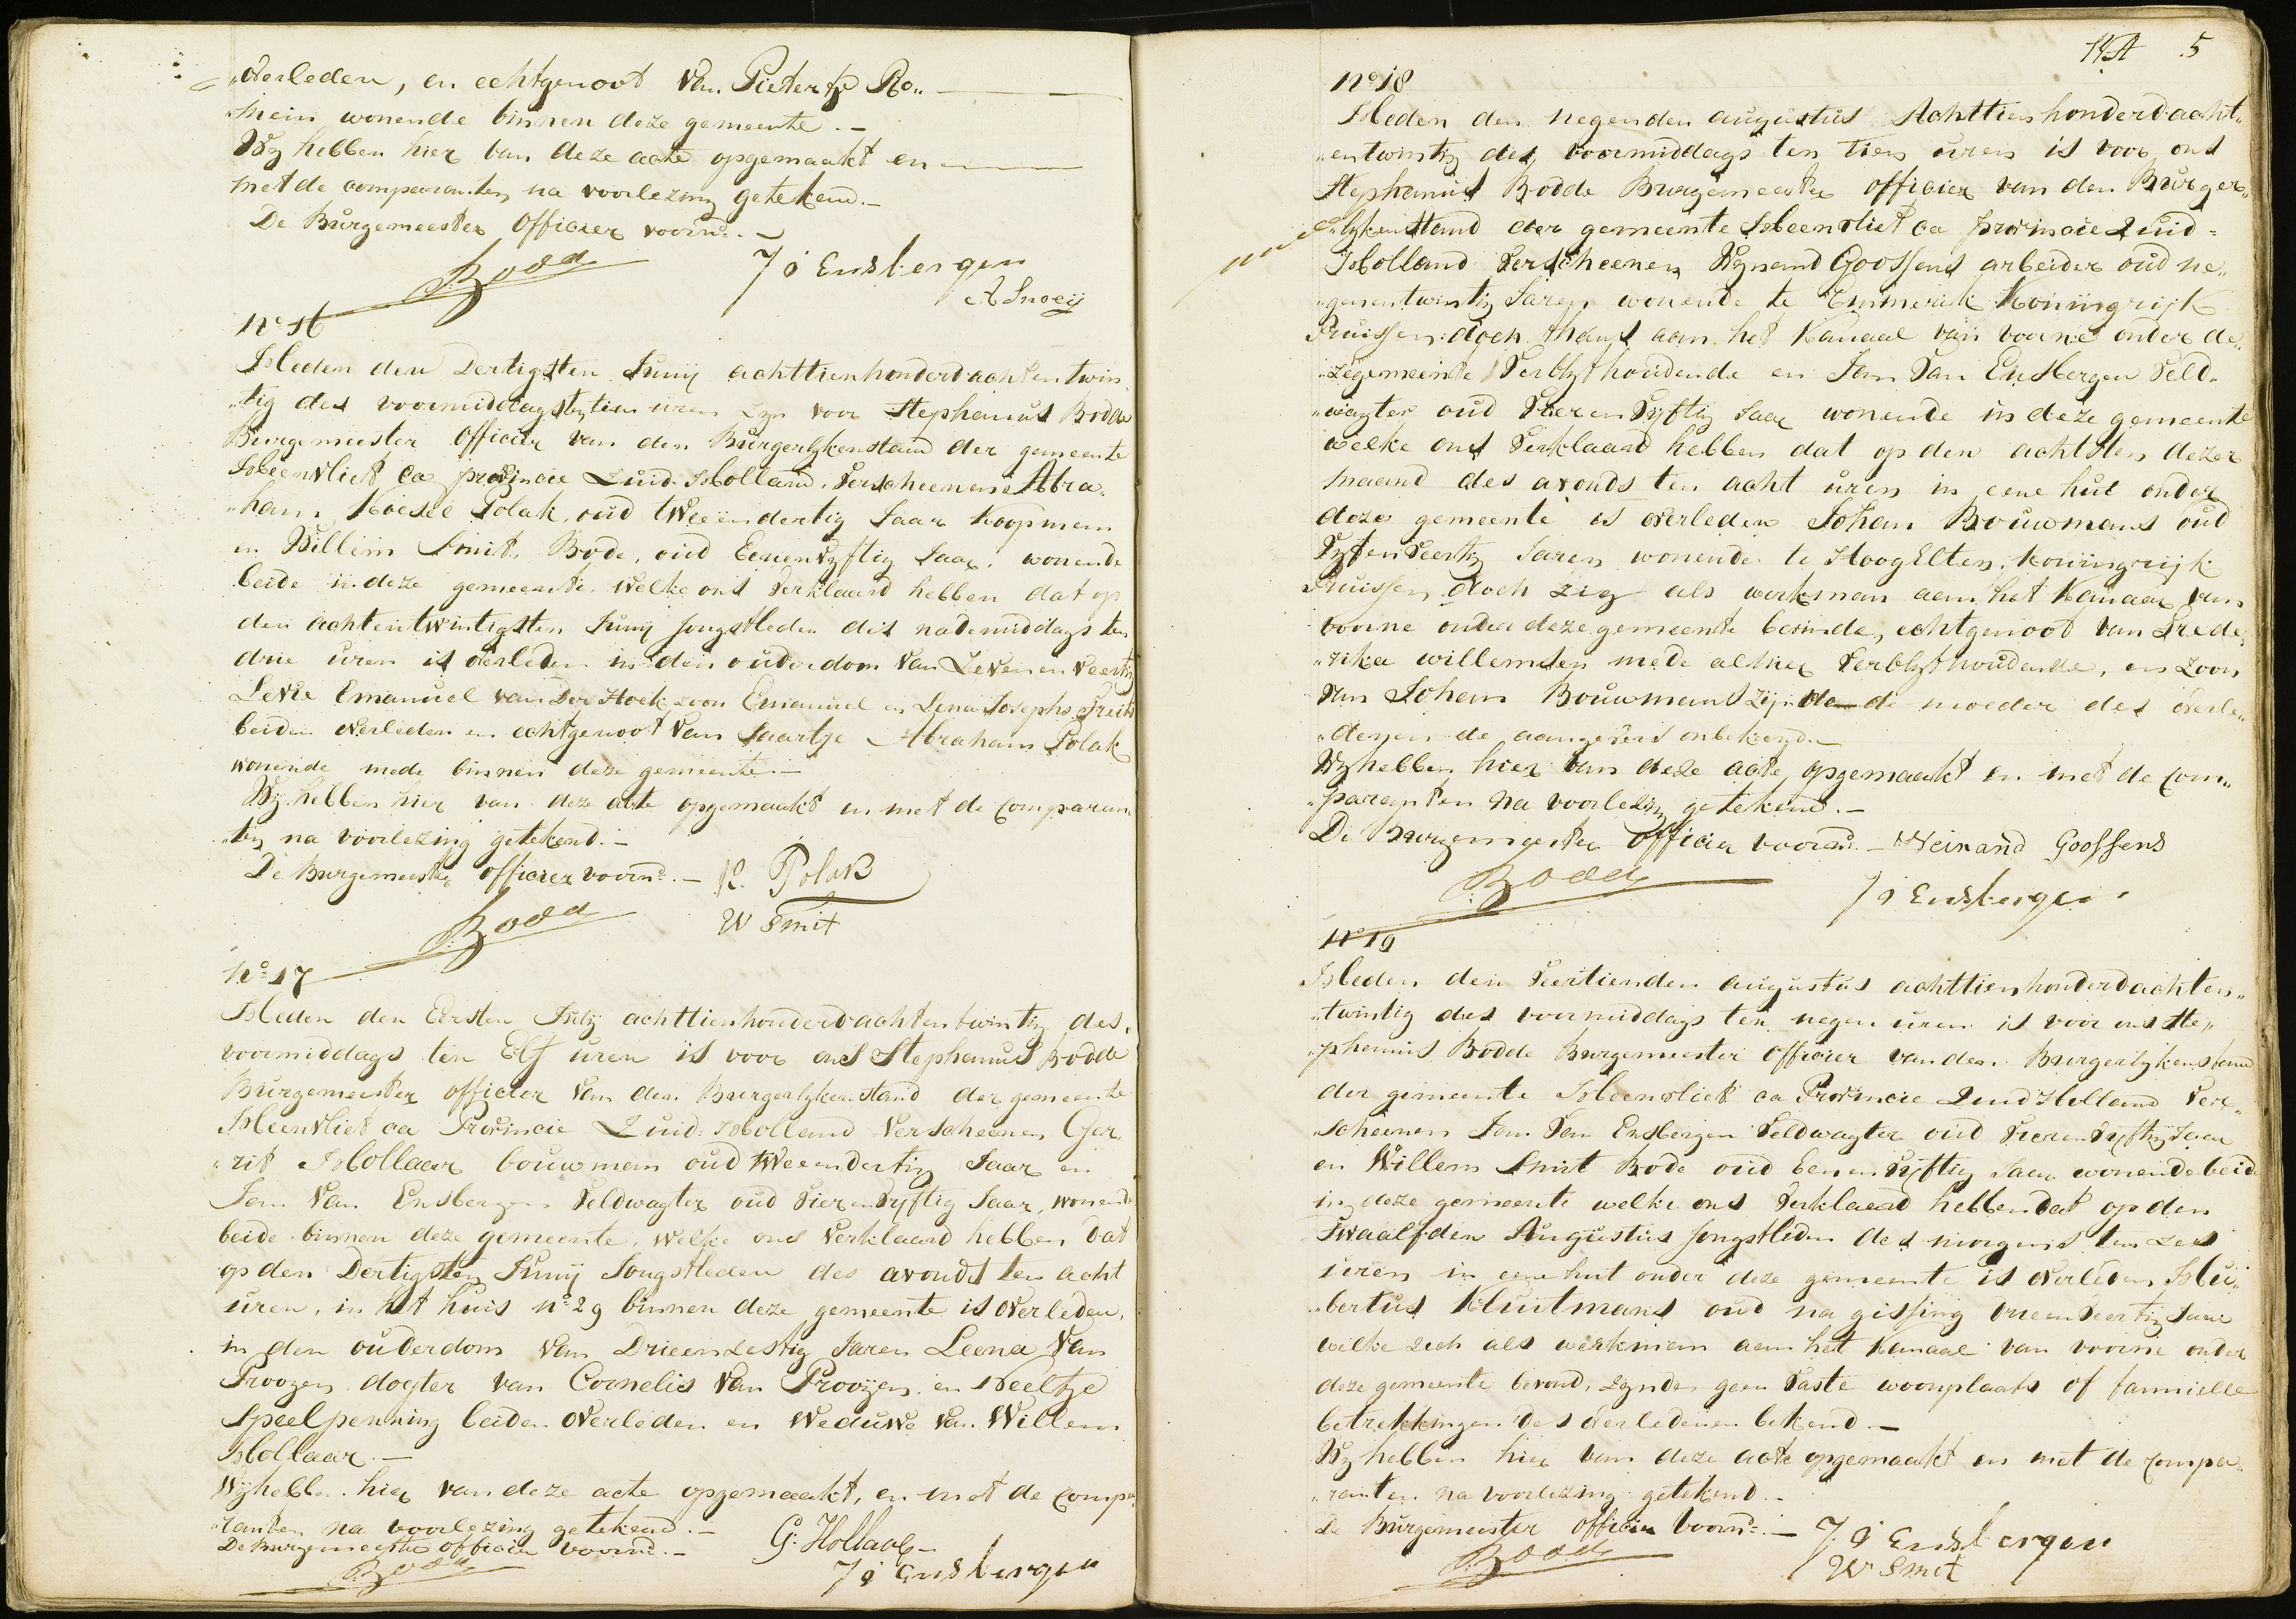 overleden, en echtgenoot Van Pietertje Ro„
„mein wonende binnen deze gemeente.–
Wy hebben hier van deze acte opgemaakt en
met de comparanten na voorlezing getekend.–
De Burgemeester Officier voornd.–
Bodde
J V Ensbergen
A Snoeij
No 16
Heden den Dertigsten Junij achttienhonderdachtentwin
„tig des voormiddags ten tien uren zyn voor Stephanus Bodde
Burgemeester Officier van den Burgerlykenstand der gemeente
Heenvliet ca provincie Zuid-Holland, Verscheenen Abra„
„ham Koesel Polak, oud tweeendertig Jaar Koopman
en Willem Smit, Bode, oud Eenenvyftig Jaar, wonende
beide in deze gemeente, welke ons Verklaard hebben dat op
den achtentwintigsten Junij Jongstleden des nademiddags ten
drie uren is overleden in den ouderdom Van Zevenenveertig
Levie Emanuel van Der Hoek, zoon Emanuel en Lena Josephs
beiden overleden en echtgenoot Van Saartje Abraham Polak
wonende mede binnen deze gemeente.–
Wij hebben hier van deze acte opgemaakt en met de Comparan
„ten na voorlezing getekend.–
De Burgemeester Officier voornd.–
Bodde
K. Polak
W Smit
No 17
Heden den Eersten July achttienhonderdachtentwintig des
voormiddags ten Elf uren is voor ons Stephanus Bodde
Burgemeester officier Van den Burgerlykenstand der gemeente
Heenvliet ca Provincie Zuid-Holland Verscheenen Ger„
„rit Hollaar bouwman oud tweeendertig Jaar en
Jan Van Ensbergen Veldwagter oud Vierenvyftig Jaar, wonende
beide binnen deze gemeente, welke ons Verklaard hebben dat
op den Dertigsten Junij Jongstleden des avonds ten acht
uren, in het huis No 29 binnen deze gemeente is overleden,
in den ouderdom Van Drieenzestig Jaren Leena Van
Prooyen dogter van Cornelis Van Prooyen en Neeltje
Speelpenning beiden overleden en Weduwe Van Willem
Hollaar.–
Wij hebben hier van deze acte opgemaakt, en met de Compa
„ranten na voorlezing getekend.–
De Burgemeester officier voornd.–
Bodde
G. Hollaar
J V Ensbergen
5
No 18
Heden den negenden augustus Achttienhonderdacht„
„entwintig des voormiddags ten tien uren is voor ons
Stephanus Bodde Burgemeester Officier van den Burger„
„lykenstand der gemeente Heenvliet ca provincie Zuid=
Holland Verscheenen Wynand Goossens arbeider oud ne„
„genentwintig Jaren wonende te Emmerik Koningrijk
Pruissen doch thans aan het Kanaal van voorne onder de„
„ze gemeente Verblyfhoudende en Jan Van Ensbergen Veld„
„wagter oud Vierenvyftig Jaar wonende in deze gemeente
welke ons Verklaard hebben dat op den achtsten dezer
maand des avonds ten acht uren in eene hut onder
deze gemeente is overleden Johan Bouwmans oud
Vyfenveertig Jaren wonende te HoogElten, Koningrijk
Pruissen doch zig als werkman aan het Kanaal van
voorne onder deze gemeente bevinde, echtgenoot van Frede„
„rika willemsen mede alhier Verblyfhoudende, en zoon
Van Johan Bouwmans zijnde de moeder des overle„
„denen de aangevers onbekend
Wy hebben hier van deze acte opgemaakt en met de Com„
„paranten na voorlezing getekend.–
De Burgemeester Officier voornd.–
Bodde
Weinand Goossens
J V Ensbergen
No 19
Heden den Veertienden augustus achttienhonderdachten„
„twintig des voormiddags ten negen uren is voor ons Ste„
„phanus Bodde Burgemeester Officier van den Burgerlykenstand
der gemeente Heenvliet ca Provincie Zuid Holland Ver„
„scheenen Jan Van Ensbergen Veldwagter oud Vierenvyftig Jaar
en Willem Smit Bode oud Eenenvyftig Jaar wonende beide
in deze gemeente welke ons Verklaard hebben dat op den
Twaalfden Augustus Jongstleden des morgens ten zes
uren in eene hut onder deze gemeente is overleden Hui„
„bertus Kluitmans oud na gissing Jaar
welke zich als werkman aan het Kanaal van voorne onder
deze gemeente bevond, zynde geen Vaste woonplaats of familie
betrekkingen des overledenen bekend.–
Wy hebben hier van deze acte opgemaakt en met de Compa„
„ranten na voorlezing getekend.–
De Burgemeester Officier voornd.–
Bodde
J V Ensbergen
W Smit